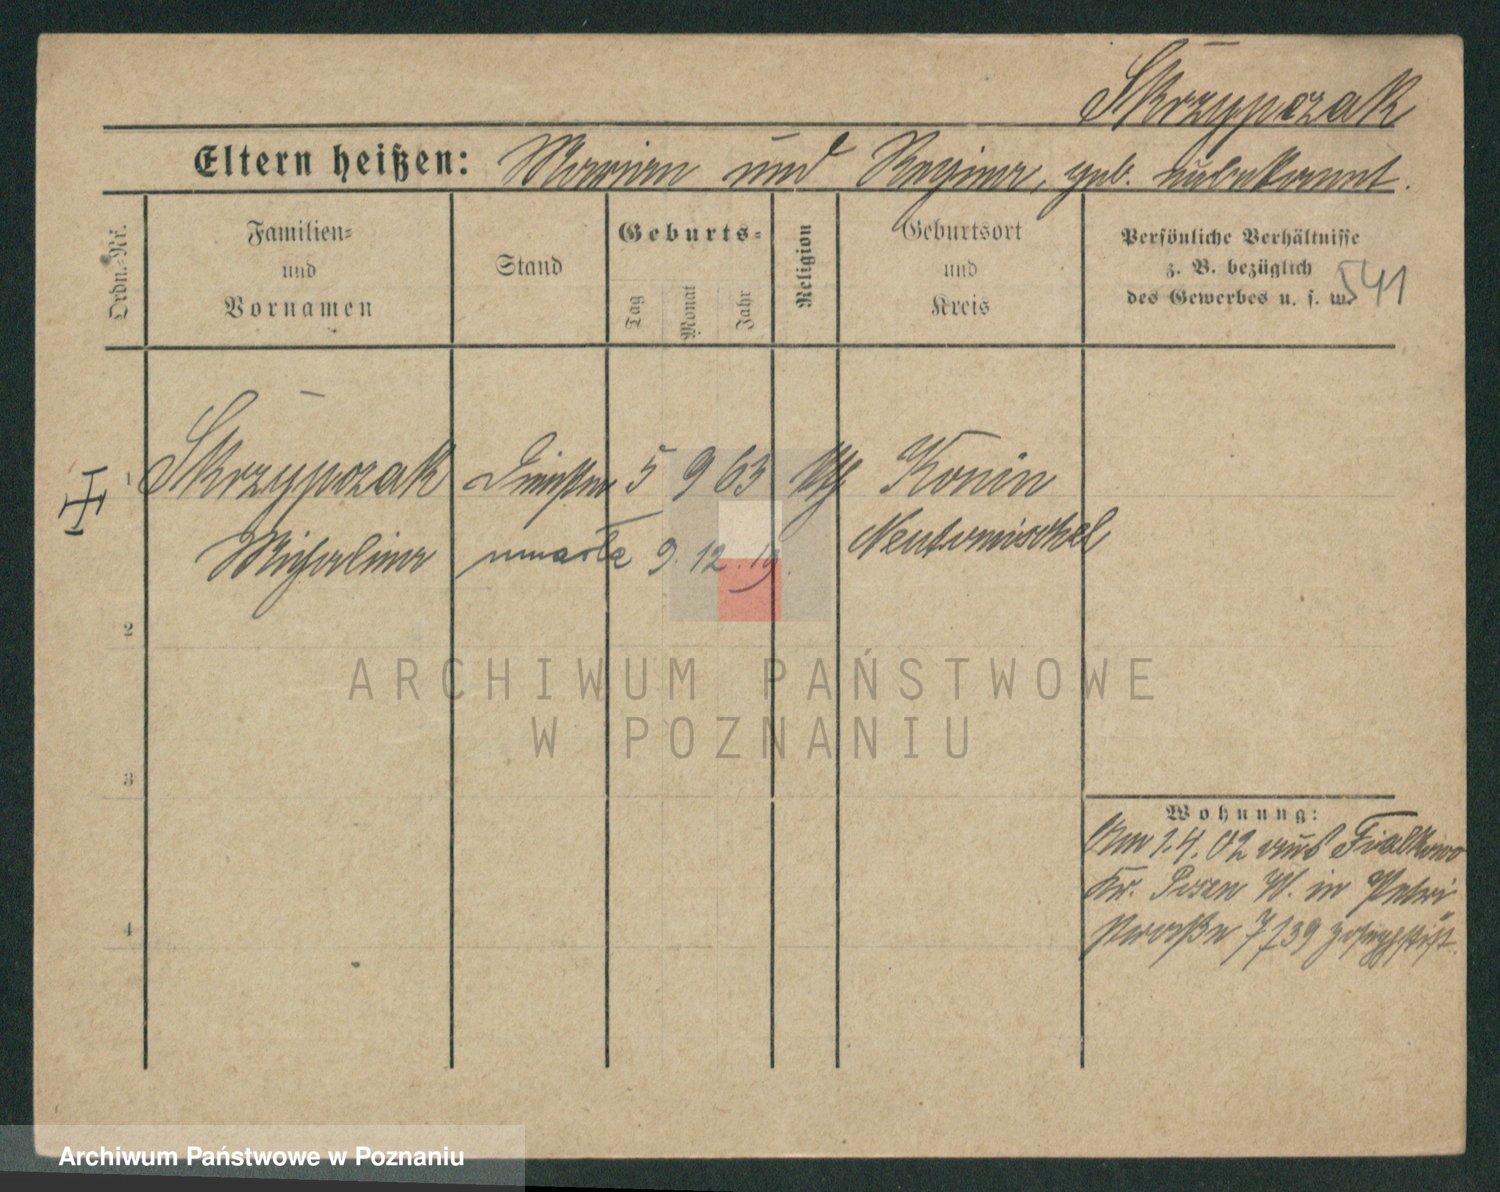 Skrzypczak
Eltern heißen: Marian und Regina, geb. unbekannt.
Ordn.-Nr.
Familien-
und
Vornamen
Stand
Geburts-
Tag
Monat
Jahr
Religion
Geburtsort
und
Kreis
Persönliche Verhältnisse
z. B. bezüglich
des Gewerbes u. s. w.
541
1 Skrzypczak 5 9 63 kth Konin
Michalina umarła 9. 12. 19. Neutomischel
2
3
4
Wohnung:
Am 1.4.02 aus Fialkowo
Kr. Posen W. in Petri
straße 7/39
ARCHIWUM PAŃSTWOWE
W POZNANIU
Archiwum Państwowe w Poznaniu